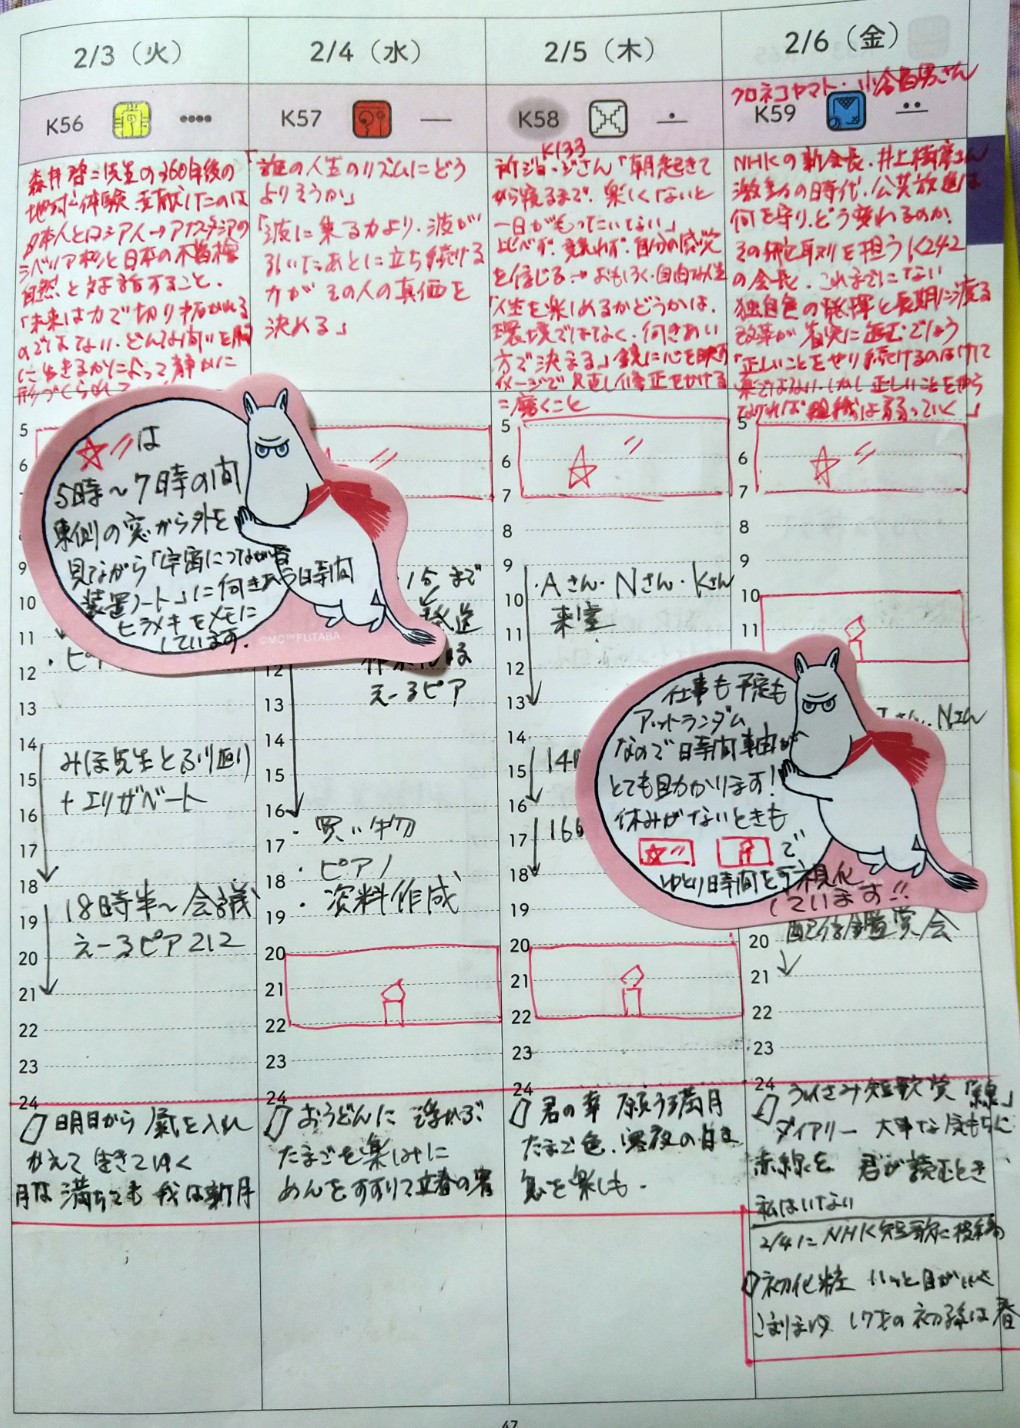 2/3（火）
K56
森井啓二先生の360年後の
地球体験、貢献したのは
日本人とロシア人→アナスタシアの
シベリア杉と日本の不耕起
自然と対話すること。
「未来は力で切り拓かれる
のではない、どんな問いを胸
に生きるかによって静かに
形づくられて
5
は
5時〜7時の間
東側の窓から外を
見ながら「宇宙につながる
装置ノート」に向きあう日時間
ヒラメキをメモに
しています。
©MC™FUTABA
12
・ピ
13
14
みほ先生とふり返り
15
+エリザベート
16
17
18
18時半〜会議
19
えーるピア212
20
21
22
23
24
明日から 氣を入れ
かえて 生きてゆく
月は満ちても 我は新月
2/4（水）
K57
「誰の人生のリズムにどう
よりそうか」
「波に乗る力より、波が
引いたあとに立ち続ける
力が その人の真価を
決める」
15まで
えーるピア
12
13
14
15
16
・買い物
17
・ピアノ
18
・資料作成
19
20
21
22
23
24
おうどんに 浮かぶ
たまごを楽しみに
めんをすすりて立春の宵
2/5（木）
K58
K133
さん「朝起きて
から寝るまで、楽しくないと
一日がもったいない」
比べず、競わず、自分の感覚
を信じる→おもしろく自由な人生
「人生を楽しめるかどうかは、
環境ではなく、向きあい
方で決まる」鏡に心を映し
イメージで見直し修正をかける
=磨くこと
5
6
7
8
9
・Aさん・Nさん・Kさん
10
来室
11
12
13
14
15
16
17
18
19
20
21
22
23
24
君の幸 願う満月
たまご色、深夜の白き
息を楽しも。
2/6（金）
クロネコヤマト・小倉昌男さん
K59
NHKの新会長、井上樹彦さん
激動の時代、公共放送は
何を守り、どう変わるのか。
その舵取りを担うK242
の会長。これまでにない
独自色の発揮と長期に渡る
改革が着実に進むでしょう
「正しいことをやり続けるのはけして
楽ではない、しかし正しいことをやら
なければ組織は弱っていく」
5
6
7
8
9
10
11
仕事も予定も
アットランダム
なので日時間軸が
とても助かります！
休みがないときも
で
ゆとり時間を可視化
しています！！
Nさん
配信鑑賞会
20
21
22
23
24
うたさみ短歌賞「線」
ダイアリー 大事な気もちに
赤線を 君が読むとき、
私はいない
2/4にNHK短歌に投稿
初化粧
17才の初孫は春
47